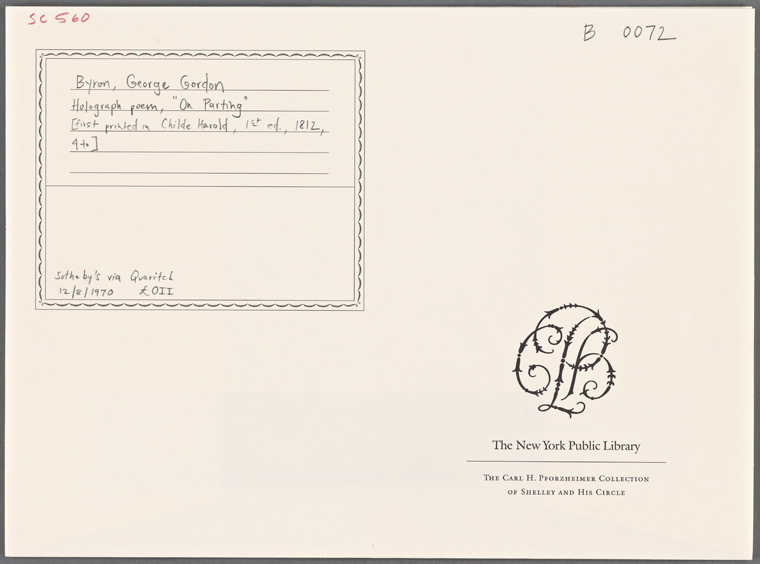 SC 560
B 0072
Byron, George Gordon
Holograph poem, "On Parting"
[First printed in Childe Harold, 1st ed., 1812,
4to]
Sotheby's via Quaritch
12/8/1970 £OII
The New York Public Library
The Carl H. Pforzheimer Collection
of Shelley and His Circle